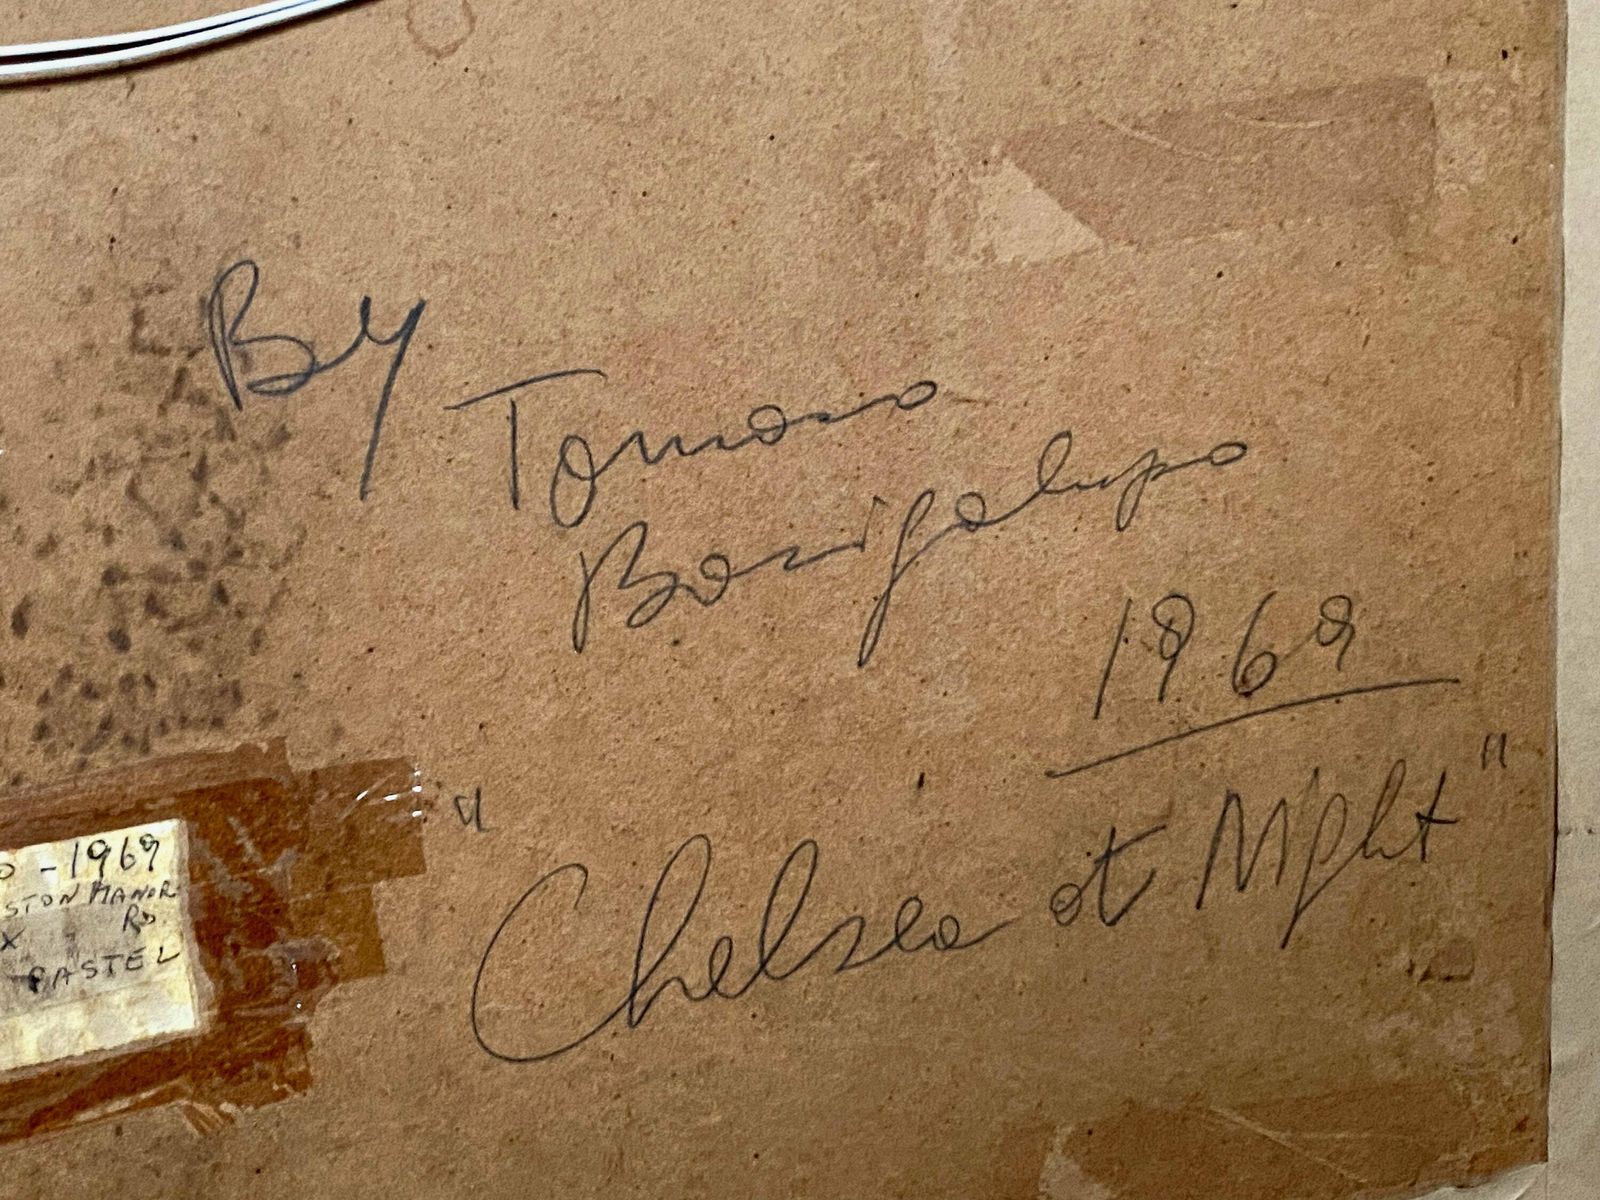 By
Tomaso
Bonigalupo
1969
"Chelsea at Night"
o - 1969
STON MANOR
X RD
PASTEL